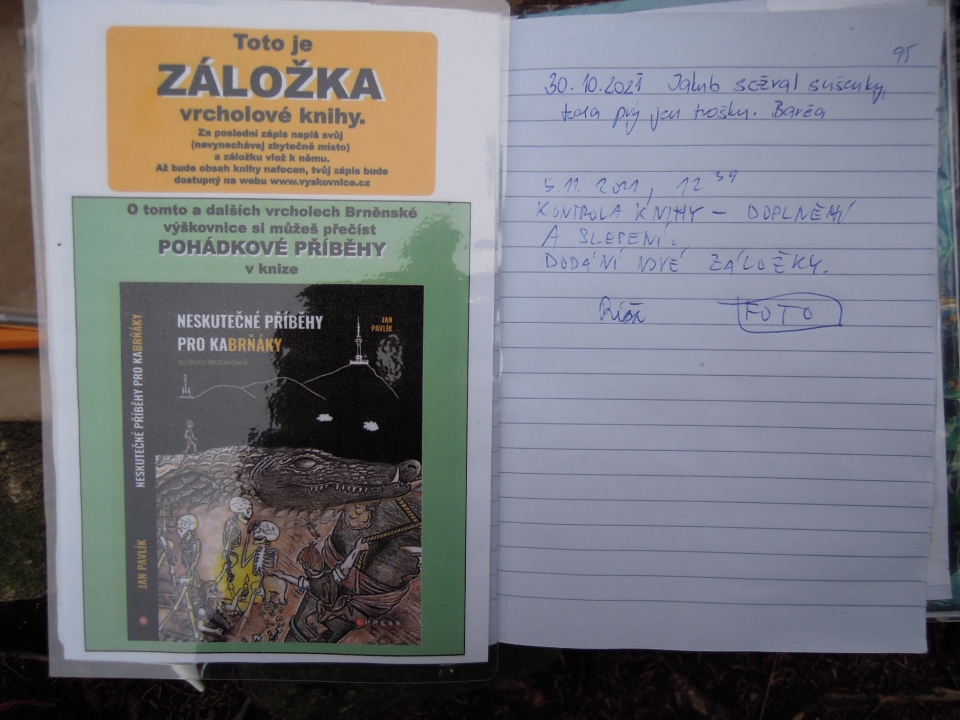 Toto je
ZÁLOŽKA
vrcholové knihy.
Za poslední zápis napiš svůj
(nevynechávej zbytečně místo)
a záložku vlož k němu.
Až bude obsah knihy nafocen, tvůj zápis bude
dostupný na webu www.vyskovnice.cz
O tomto a dalších vrcholech Brněnské
výškovnice si můžeš přečíst
POHÁDKOVÉ PŘÍBĚHY
v knize
NESKUTEČNÉ PŘÍBĚHY PRO KABRŇÁKY
JAN PAVLÍK
NESKUTEČNÉ PŘÍBĚHY
PRO KABRŇÁKY
JAN
PAVLÍK
CPRESS
95
30.10.2021 Jakub sežral sušenky,
teda prý jen trošku. Barča
5.11.2021, 12 39
KONTROLA KNIHY – DOPLNĚNÍ
A SLEPENÍ.
DODÁNÍ NOVÉ ZÁLOŽKY.
FOTO